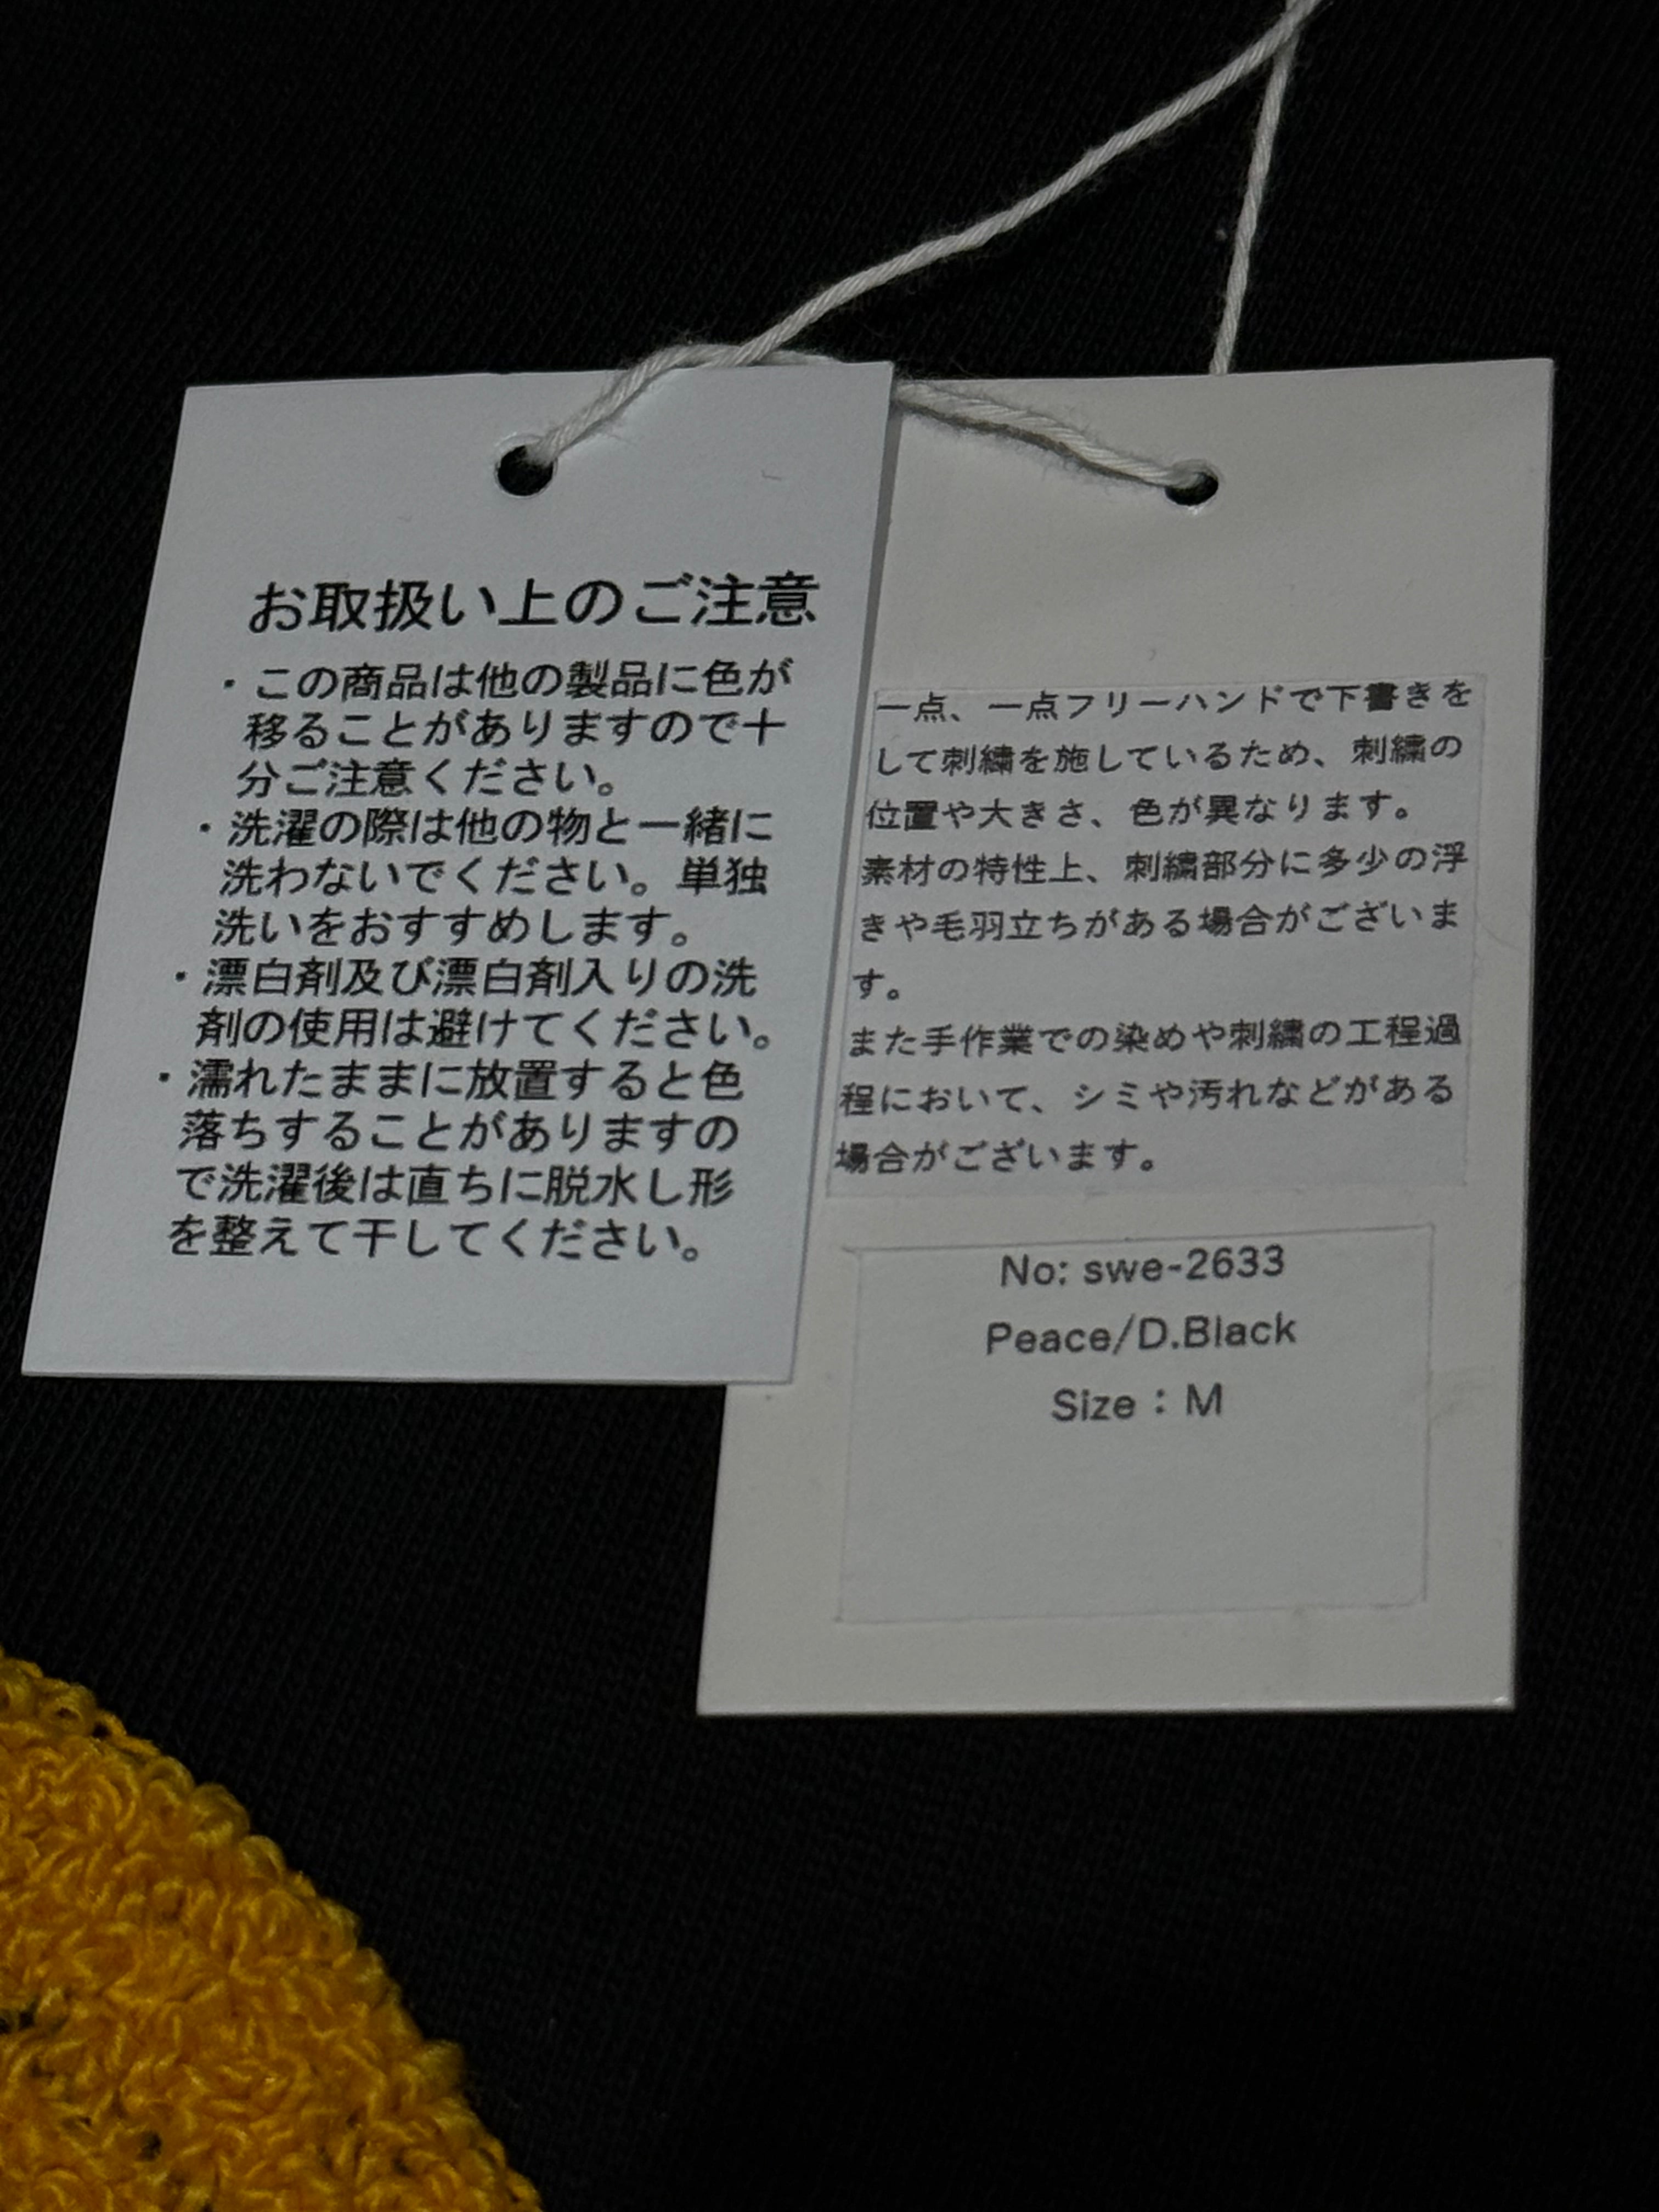 お取扱い上のご注意
・この商品は他の製品に色が
移ることがありますので十
分ご注意ください。
・洗濯の際は他の物と一緒に
洗わないでください。単独
洗いをおすすめします。
・漂白剤及び漂白剤入りの洗
剤の使用は避けてください。
・濡れたままに放置すると色
落ちすることがありますの
で洗濯後は直ちに脱水し形
を整えて干してください。
一点、一点フリーハンドで下書きを
して刺繍を施しているため、刺繍の
位置や大きさ、色が異なります。
素材の特性上、刺繍部分に多少の浮
きや毛羽立ちがある場合がございま
す。
また手作業での染めや刺繍の工程過
程において、シミや汚れなどがある
場合がございます。
No: swe-2633
Peace/D.Black
Size：M